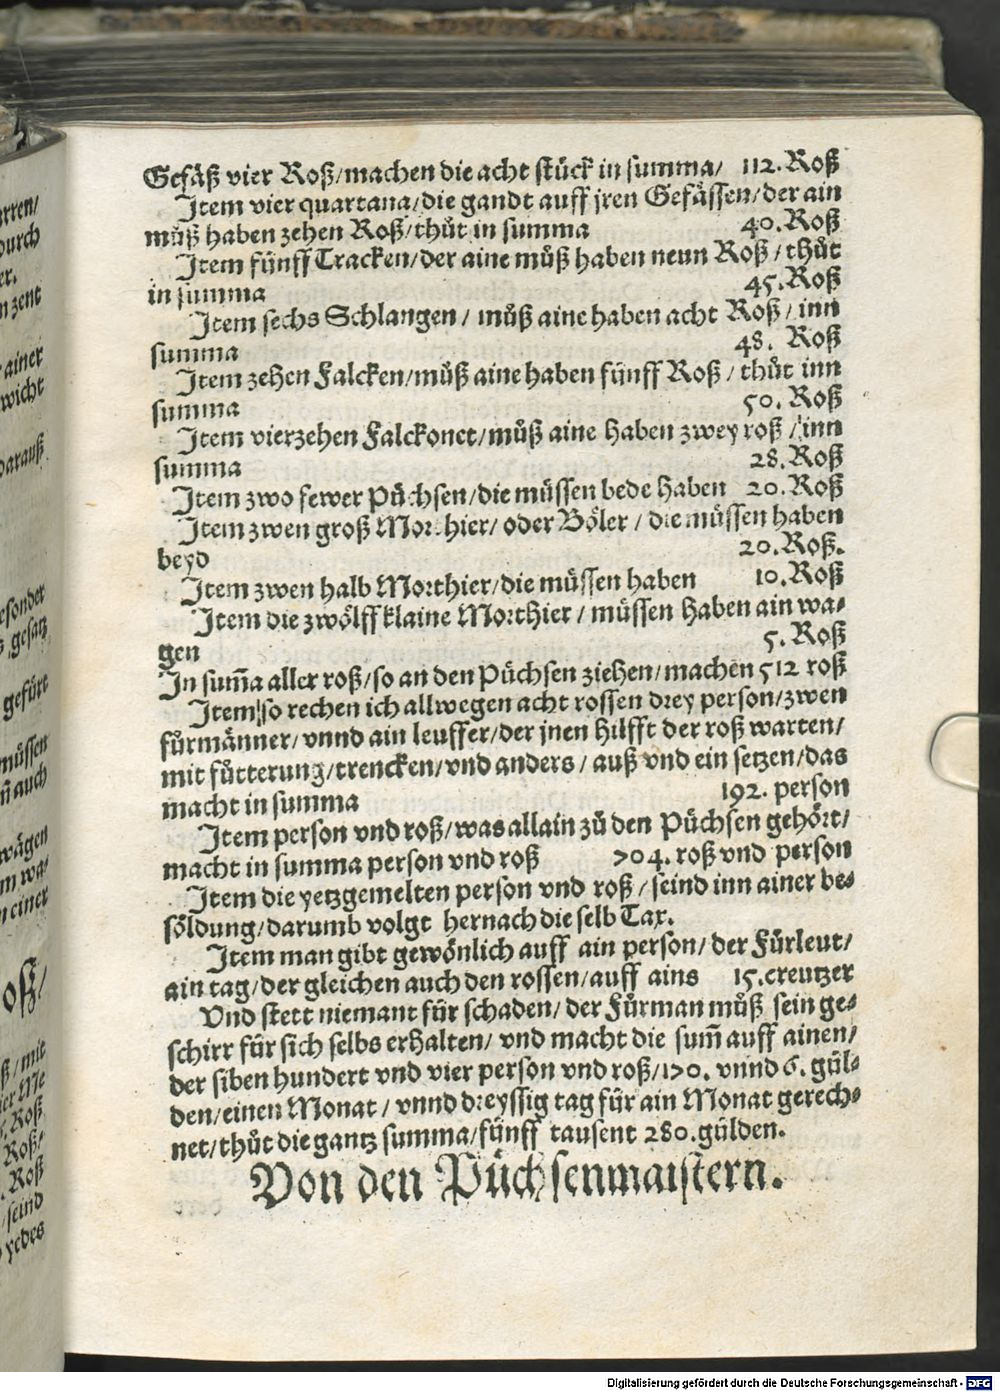 Gefäß vier Roß/machen die acht stück in summa/ 112. Roß
Item vier quartana/die gandt auff jren Gefässen/der ain
můß haben zehen Roß/thůt in summa 40. Roß
Item fünff Tracken/der aine můß haben neun Roß/thůt
in summa 45. Roß
Item sechs Schlangen/ můß aine haben acht Roß/ inn
summa 48. Roß
Item zehen Falcken/můß aine haben fünff Roß/ thůt inn
summa 50. Roß
Item vierzehen Falckonet/můß aine haben zwey roß/inn
summa 28. Roß
Item zwo fewer Püchsen/die müssen bede haben 20. Roß
Item zwen groß Morthier/ oder Böler/ die müssen haben
beyd 20. Roß.
Item zwen halb Morthier/die müssen haben 10. Roß
Item die zwölff klaine Morthier/ müssen haben ain wa-
gen 5. Roß
In sum̃a aller roß/so an den Püchsen ziehen/machen 512 roß
Item so rechen ich allwegen acht rossen drey person/zwen
fůrmänner/vnnd ain leuffer/der jnen hilfft der roß warten/
mit fůtterung/trencken/vnd anders/ auß vnd ein setzen/das
macht in summa 192. person
Item person vnd roß/was allain zů den Püchsen gehört/
macht in summa person vnd roß 704. roß vnd person
Item die yetzgemelten person vnd roß/ seind inn ainer be-
söldung/darumb volgt hernach die selb Tax.
Item man gibt gewönlich auff ain person/ der Fůrleut/
ain tag/der gleichen auch den rossen/auff ains 15. creutzer
Vnd stett niemant für schaden/ der Fůrman můß sein ge-
schirr für sich selbs erhalten/ vnd macht die sum̃ auff ainen/
der siben hundert vnd vier person vnd roß/170. vnnd 6. gül-
den/einen Monat/ vnnd dreyssig tag für ain Monat gerech-
net/thůt die gantz summa/fünff tausent 280. gülden.
Von den Püchsenmaistern.
urch
er.
zent
ainer
wicht
darauß
gesatz
gefürt
müssen
auch
wägen
einer
oß/
mit
Roß
Roß/
Roß
seind
yedes
Digitalisierung gefördert durch die Deutsche Forschungsgemeinschaft - DFG